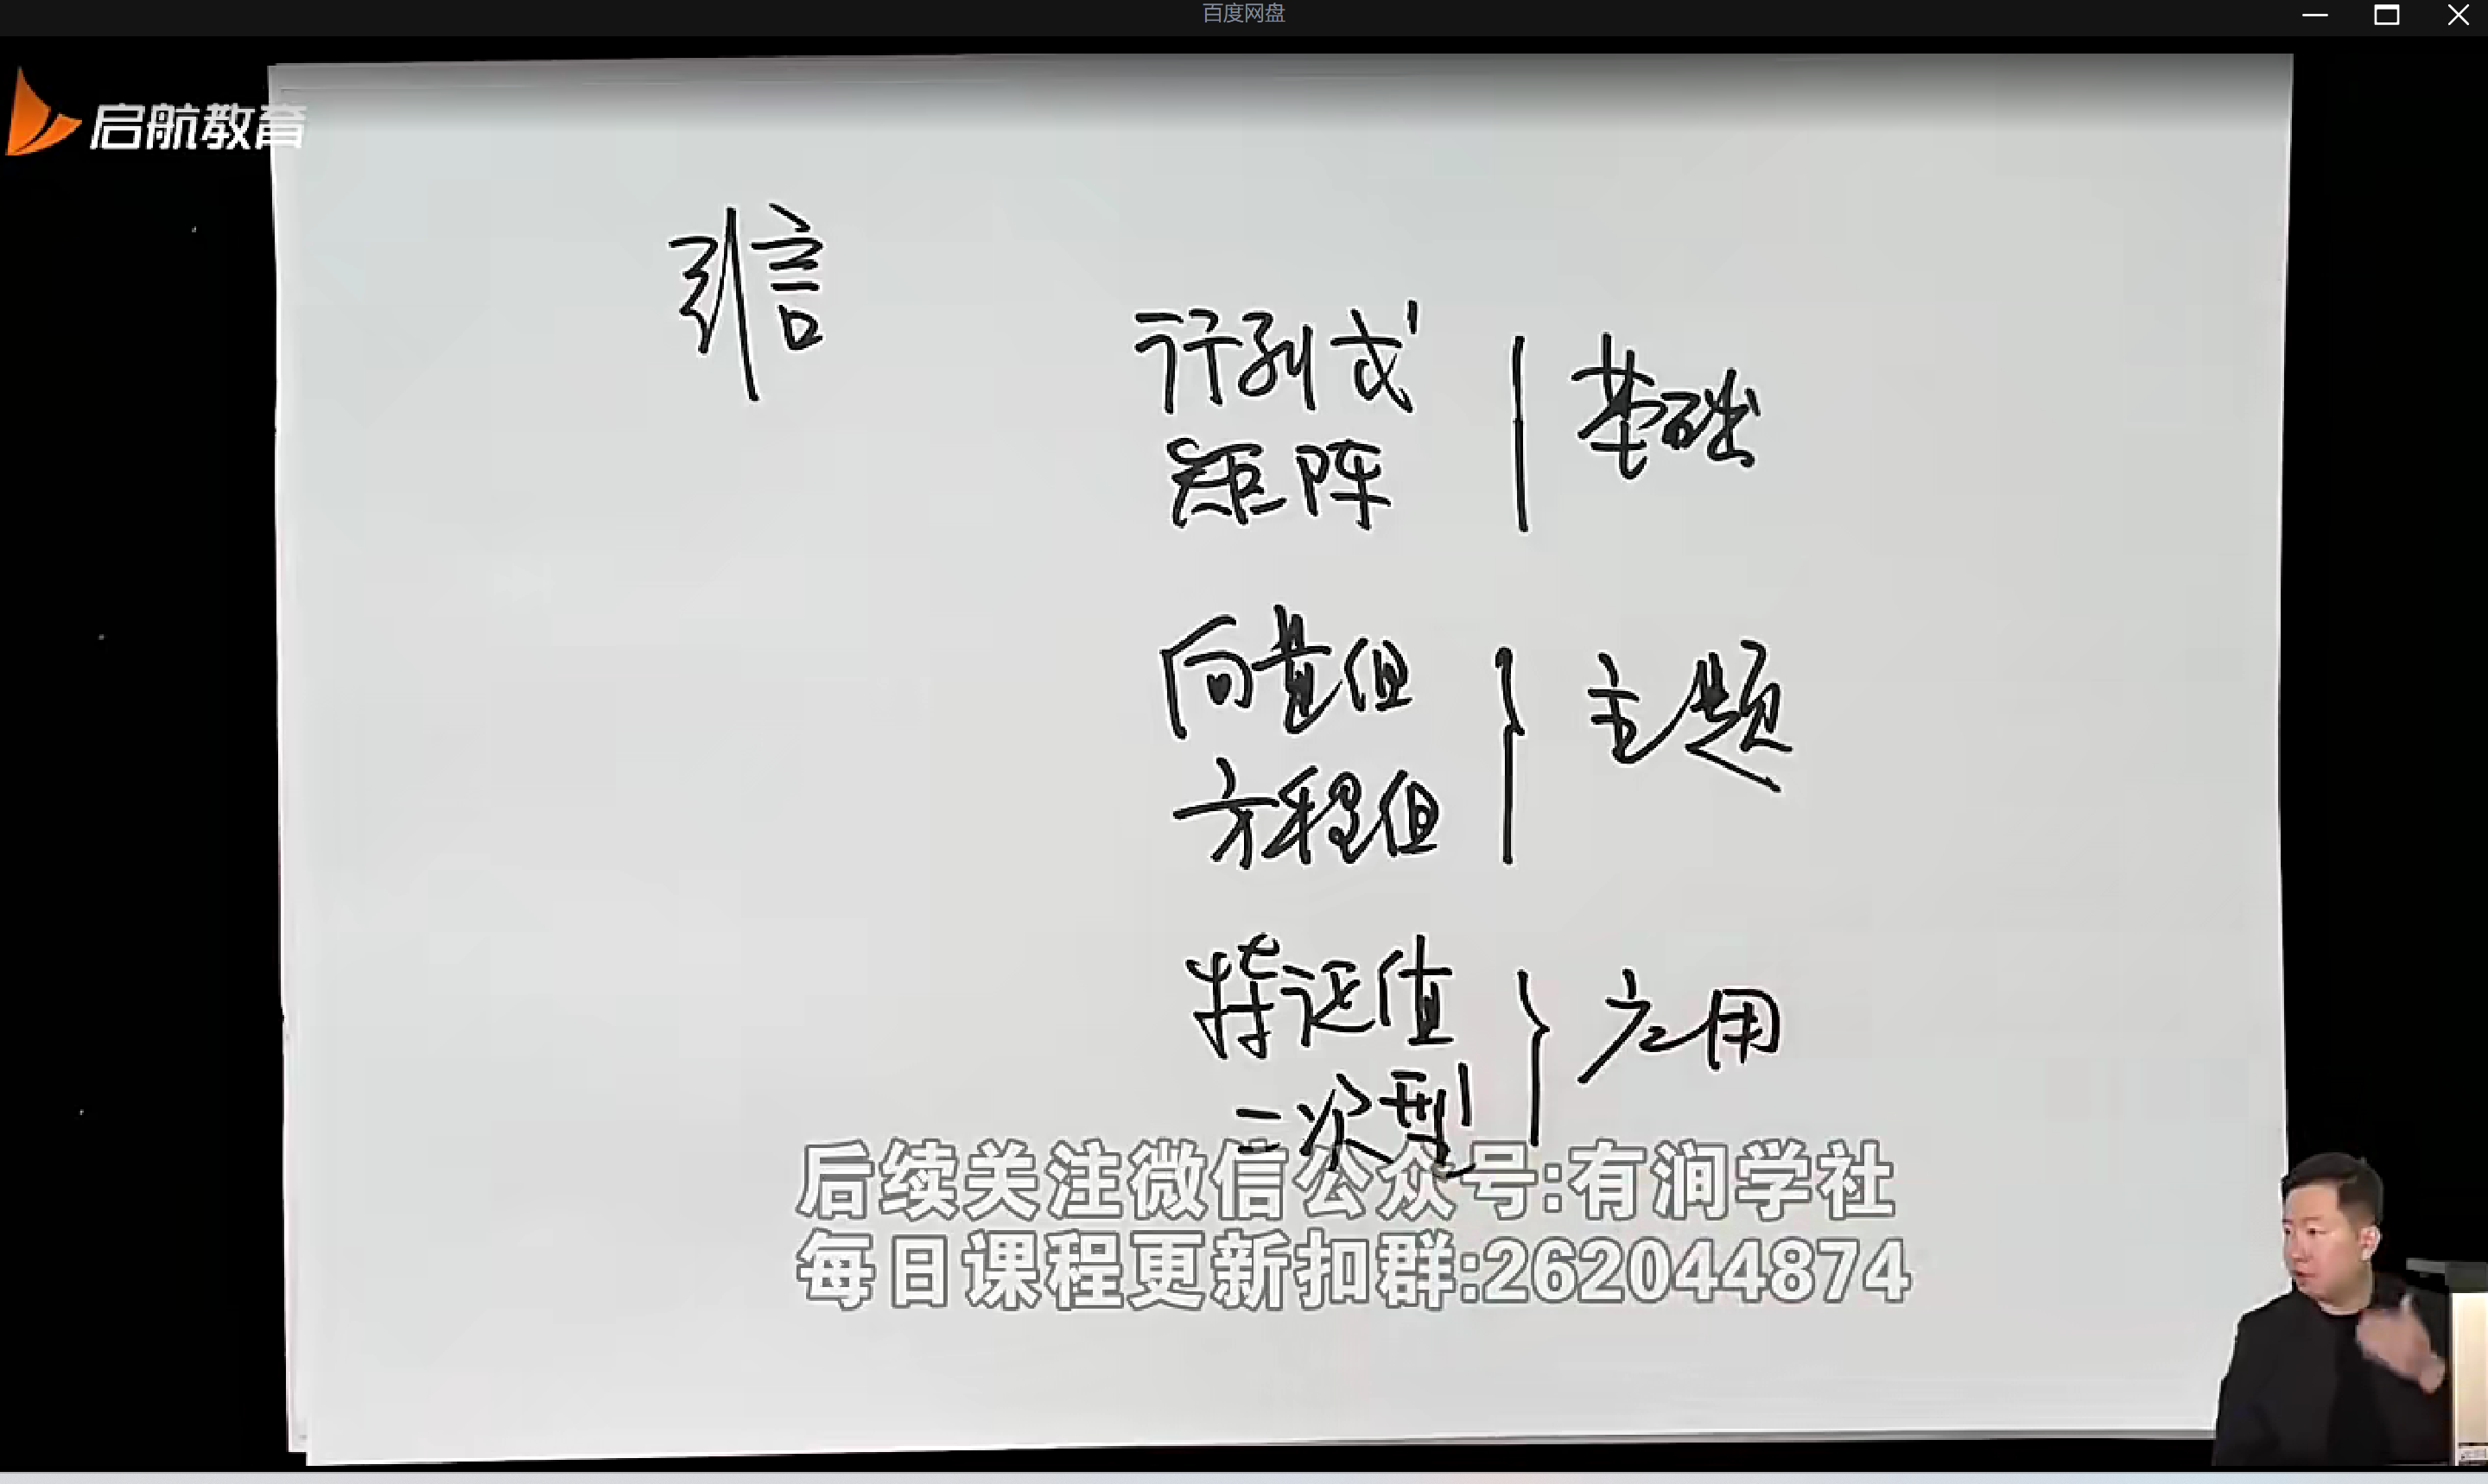 百度网盘
启航教育
引言
行列式
矩阵
基础
向量组
方程组
主题
特征值
二次型
应用
后续关注微信公众号:有润学社
每日课程更新扣群:262044874